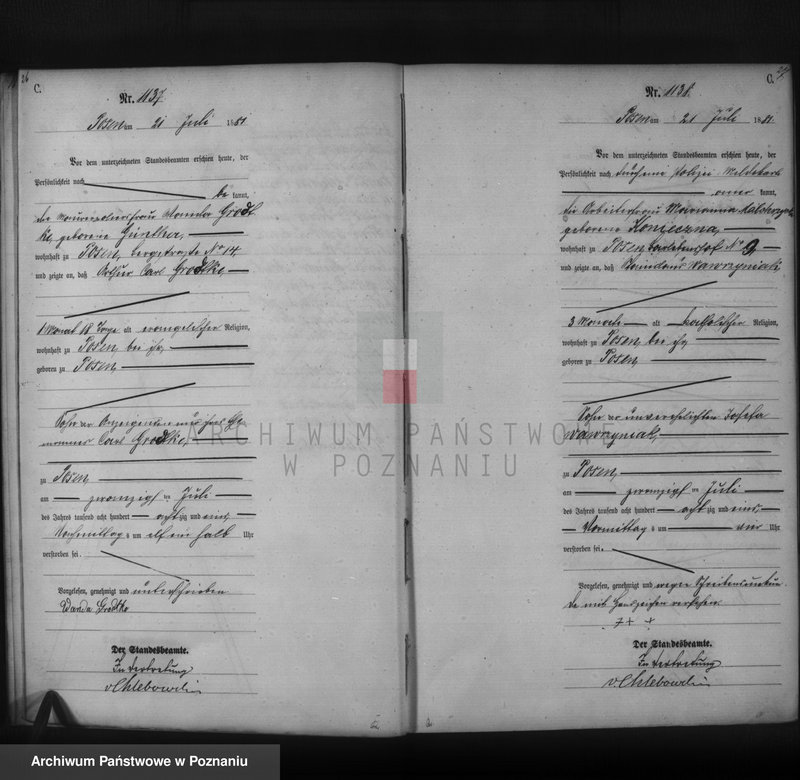 26
C.
Nr. 1137.
Posen am 21 Juli 1881.
Vor dem unterzeichneten Standesbeamten erschien heute, der
Persönlichkeit nach
be kannt,
die Wanda Grodt
ke, geborene Günther,
wohnhaft zu Posen, Bergstraße No 14,
und zeigte an, daß Arthur Carl Grodtke,
1 Monat 18 Tage alt evangelischer Religion,
wohnhaft zu Posen bei ihr,
geboren zu Posen,
Sohn der Anzeigenden und ihres Ehe
mannes Carl Grodtke,
zu Posen,
am zwanzigsten Juli
des Jahres tausend acht hundert acht zig und eins,
Nachmittag s um elf ein halb Uhr
verstorben sei.
Vorgelesen, genehmigt und unterschrieben
Wanda Grodtke
Der Standesbeamte.
In Vertretung
v. Chlebowski
27
C.
Nr. 1138.
Posen am 21 Juli 1881.
Vor dem unterzeichneten Standesbeamten erschien heute, der
Persönlichkeit nach, durch eine Polizei Meldekarte
aner kannt,
die Arbeiterfrau Marianna
geborene Konieczna,
wohnhaft zu Posen No 9,
und zeigte an, daß Wawrzyniak
3 Monate alt katholischer Religion,
wohnhaft zu Posen bei ihr,
geboren zu Posen,
Sohn der unverehelichten Josefa
Wawrzyniak,
zu Posen,
am zwanzigsten Juli
des Jahres tausend acht hundert acht zig und eins,
Vormittag s um vier Uhr
verstorben sei.
Vorgelesen, genehmigt und wegen Schreibensunkun
de mit Handzeichen versehen.
++ +
Der Standesbeamte.
In Vertretung
v. Chlebowski
ARCHIWUM PAŃSTWOWE
W POZNANIU
Archiwum Państwowe w Poznaniu